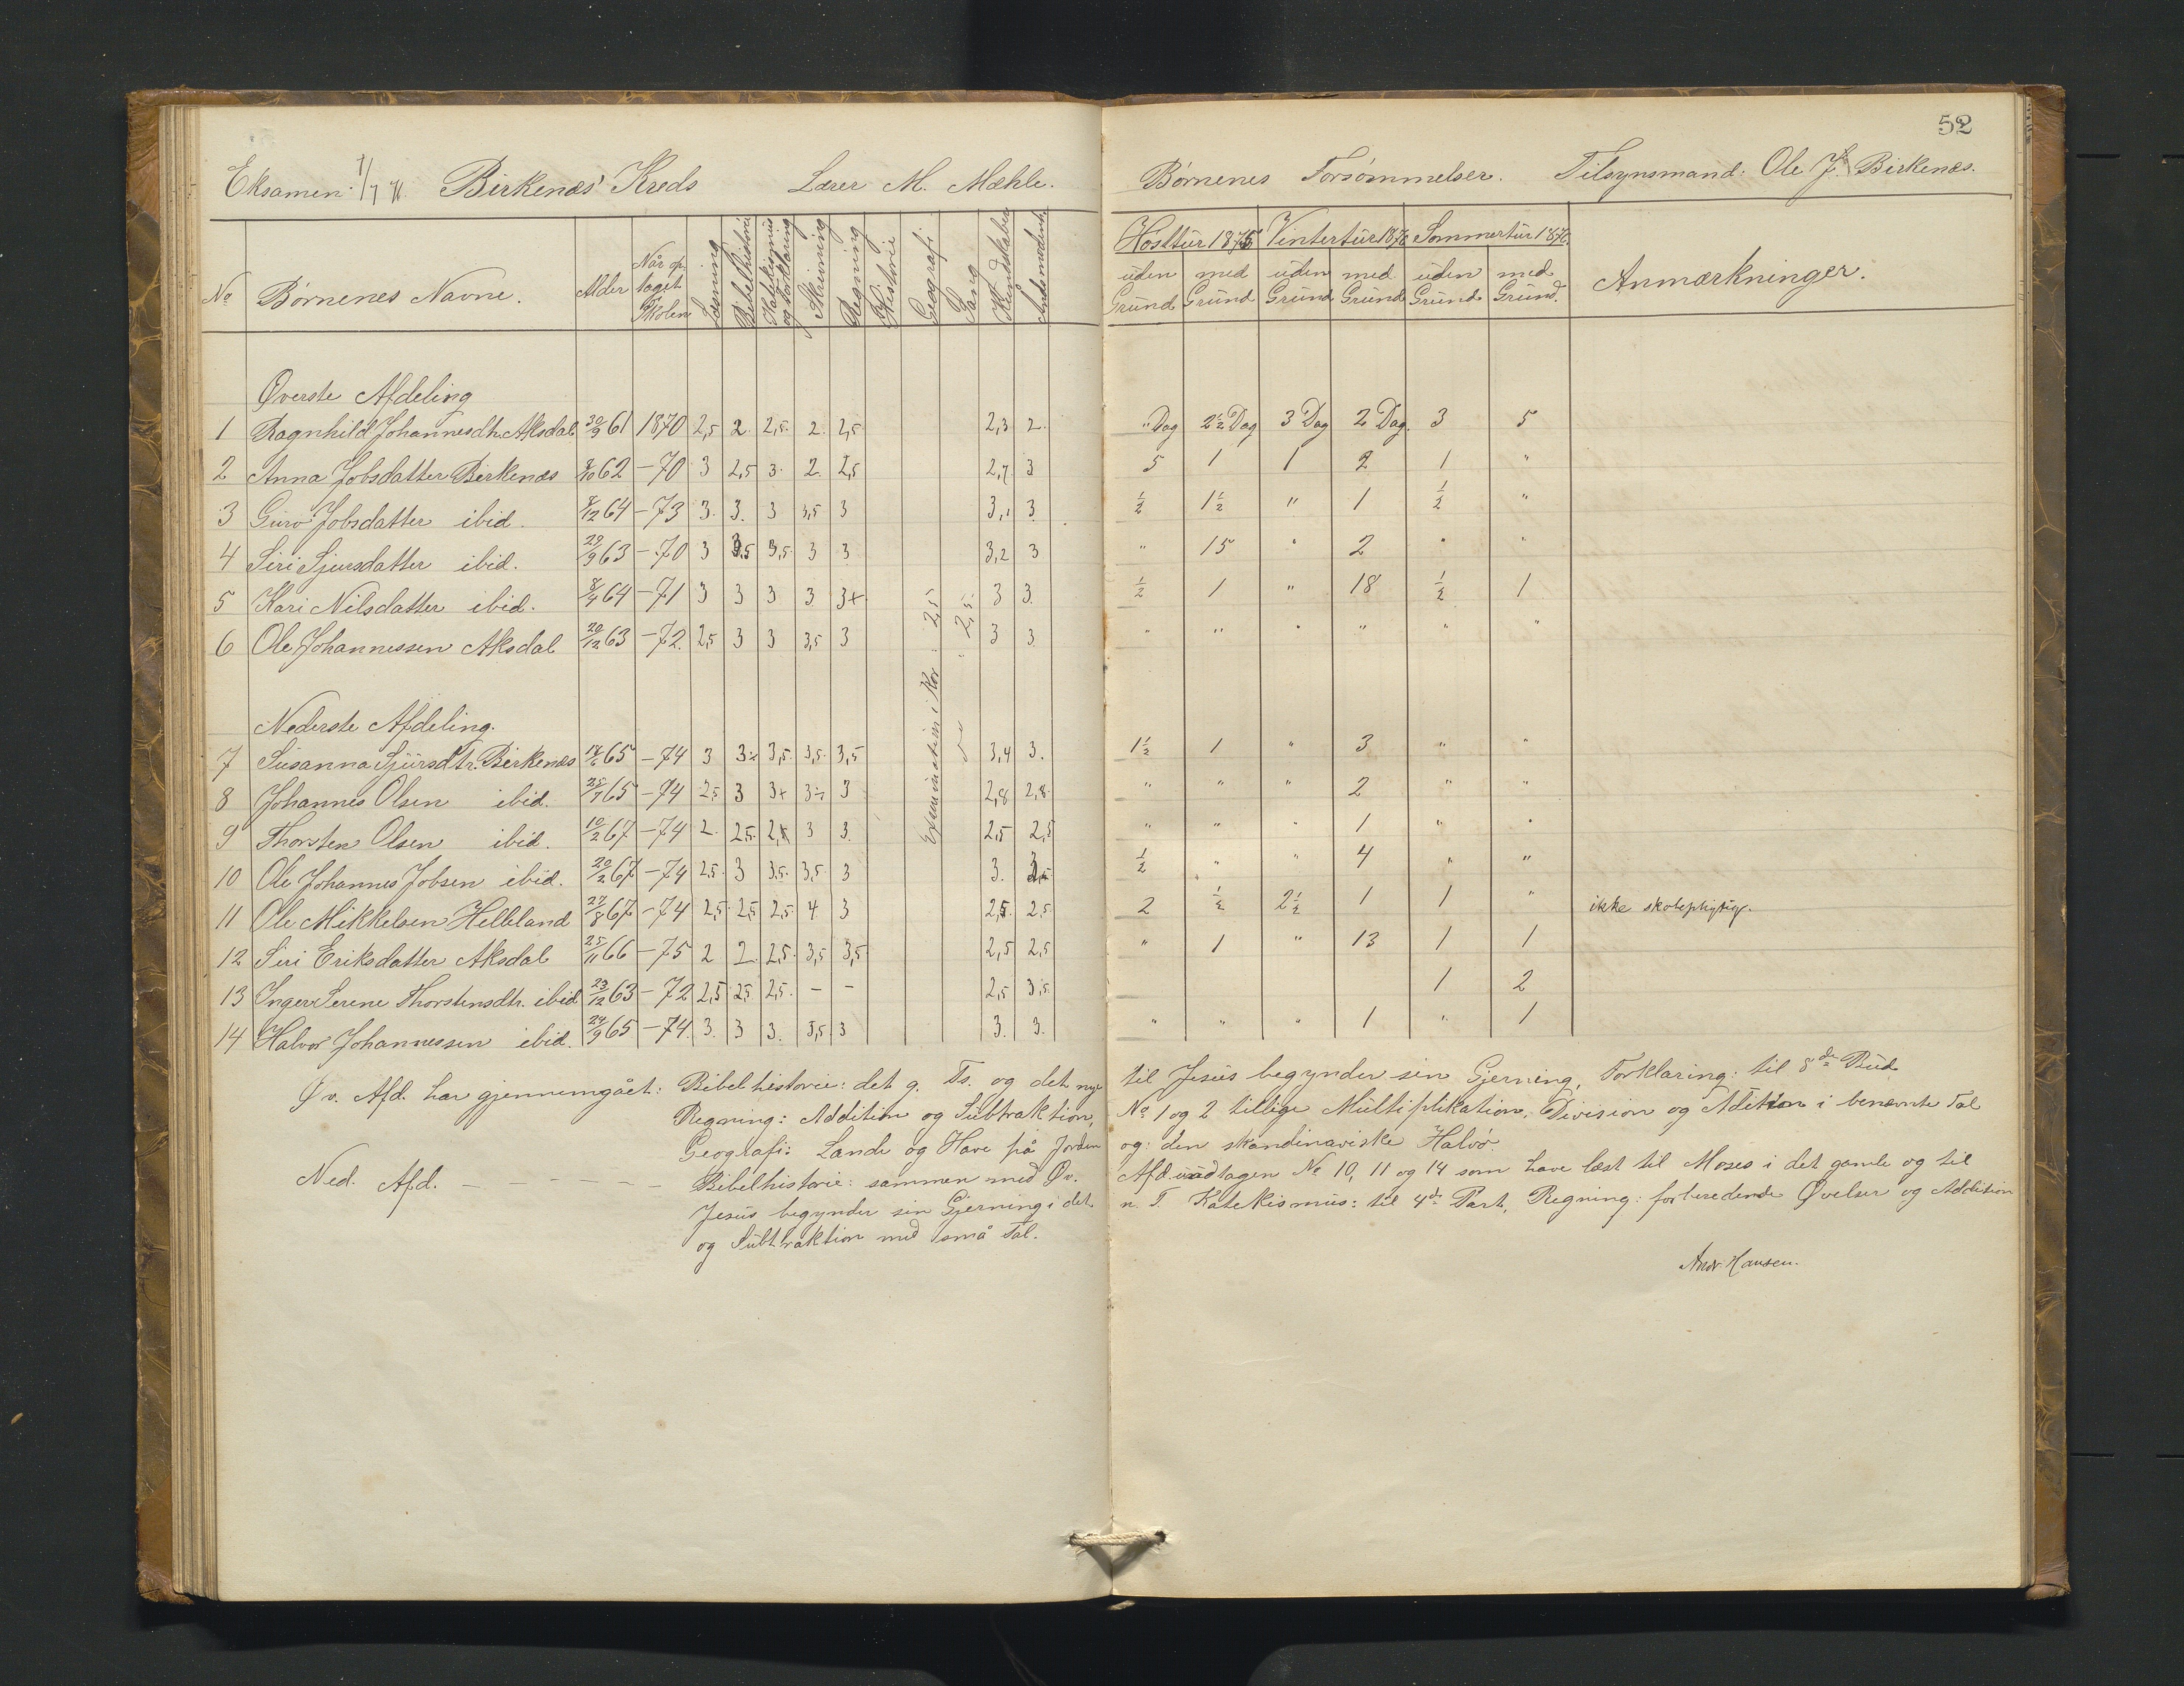 52
Eksamen 7/7 76. Birkenæs' Kreds Lærer M. Mæhle.
Børnenes Forsømmelser. Tilsynsmand: Ole J. Birkenæs.
No Børnenes Navne. Alder Når optaget Skolen Læsning Bibelhistorie Katekismus og Forklaring Skrivning Regning Historie Geografi Sang Kundskaber
Høsttür 1875 Vintertür 1876 Sommertür 1876. Anmærkninger.
uden Grund med Grund uden Grund med Grund uden Grund med Grund.
Øverste Afdeling
1 Ragnhild Johannesdtr. Aksdal 30/9 61 1870 2,5 2. 2,5. 2. 2,5 2,3 2. " Dag 2 1/2 Dag 3 Dag 2 Dag. 3 5
2 Anna Jobsdatter Birkenæs 62 – 70 3 2,5 3. 2. 2,5 2,7. 3 5 1 1 2 1 "
3 Guro Jobsdatter ibid. 8/12 64 – 73 3. 3. 3 3,5 3 3,1 3. 1/2 1 1/2 " 1 1/2 "
4 Siri Sjursdatter ibid. 29/9 63 – 70 3 3,5 3,5. 3 3 3,2 3 " 15 " 2 " "
5 Kari Nilsdatter ibid. 8/4 64 – 71 3 3 3 3 3+ 3 3. 1/2 1 " 18 1/2 1
6 Ole Johannessen Aksdal 20/12 63 – 72. 2,5 3 3 3,5 3 3 3 " " " " " "
Examination i Kor: 2,5
do " 2,5.
Nederste Afdeling.
7 Susanna Sjürsdtr. Birkenæs 65 – 74 3 3÷ 3,5. 3,5. 3,5 3,4 3. 1 1/2 1 " 3 " "
8 Johannes Olsen ibid. 25/7 65 – 74 2,5 3 3+ 3÷ 3 2,8 2,8. " " " 2 " "
9 Thorsten Olsen ibid. 10/2 67 – 74 2. 2,5. 3 3. 2,5 2,5 " " " 1 " "
10 Ole Johannes Jobsen ibid. 20/2 67 – 74 2,5. 3 3,5. 3,5 3 3. 3 1/2 " " 4 " "
11 Ole Mikkelsen Helleland 27/8 67 – 74 2,5. 2,5 2,5. 4 3 2,5. 2,5. 2 1/2 2 1/2 1 1 " ikke skolepligtig.
12 Siri Eriksdatter Aksdal 25/11 66 – 75 2 2. 2,5. 3,5 3,5 2,5 2,5 " 1 " 13 1 1
13 Inger Serene Thorstensdtr. ibid 23/12 63 – 72 2,5 2,5 2,5. – – 2,5 3,5. 1 2
14 Halvor Johannessen ibid. 24/9 65 – 74. 3. 3 3. 3,5 3 3. 3. " " " 1 " 1
Øv. Afd. har gjennemgået: Bibelhistorie: det g. Ts. og det nye til Jesus begynder sin Gjerning, Forklaring: til 8de Büd
Regning: Addition og Subtraktion, No 1 og 2 tillige Multiplikation, Division og Adition i benævnte Tal
Geografi: Lande og Have på Jorden og den skandinaviske Halvø.
Ned. Afd. – – – – – – Bibelhistorie: sammen med Øv. Afd. undtagen No 10, 11 og 14 som have læst til Moses i det gamle og til
Jesus begynder sin Gjerning i det n. T. Katekismus: til 4de Part, Regning: forberedende Øvelser og Addition
og Subtraktion med små Tal.
Andr. Hansen.